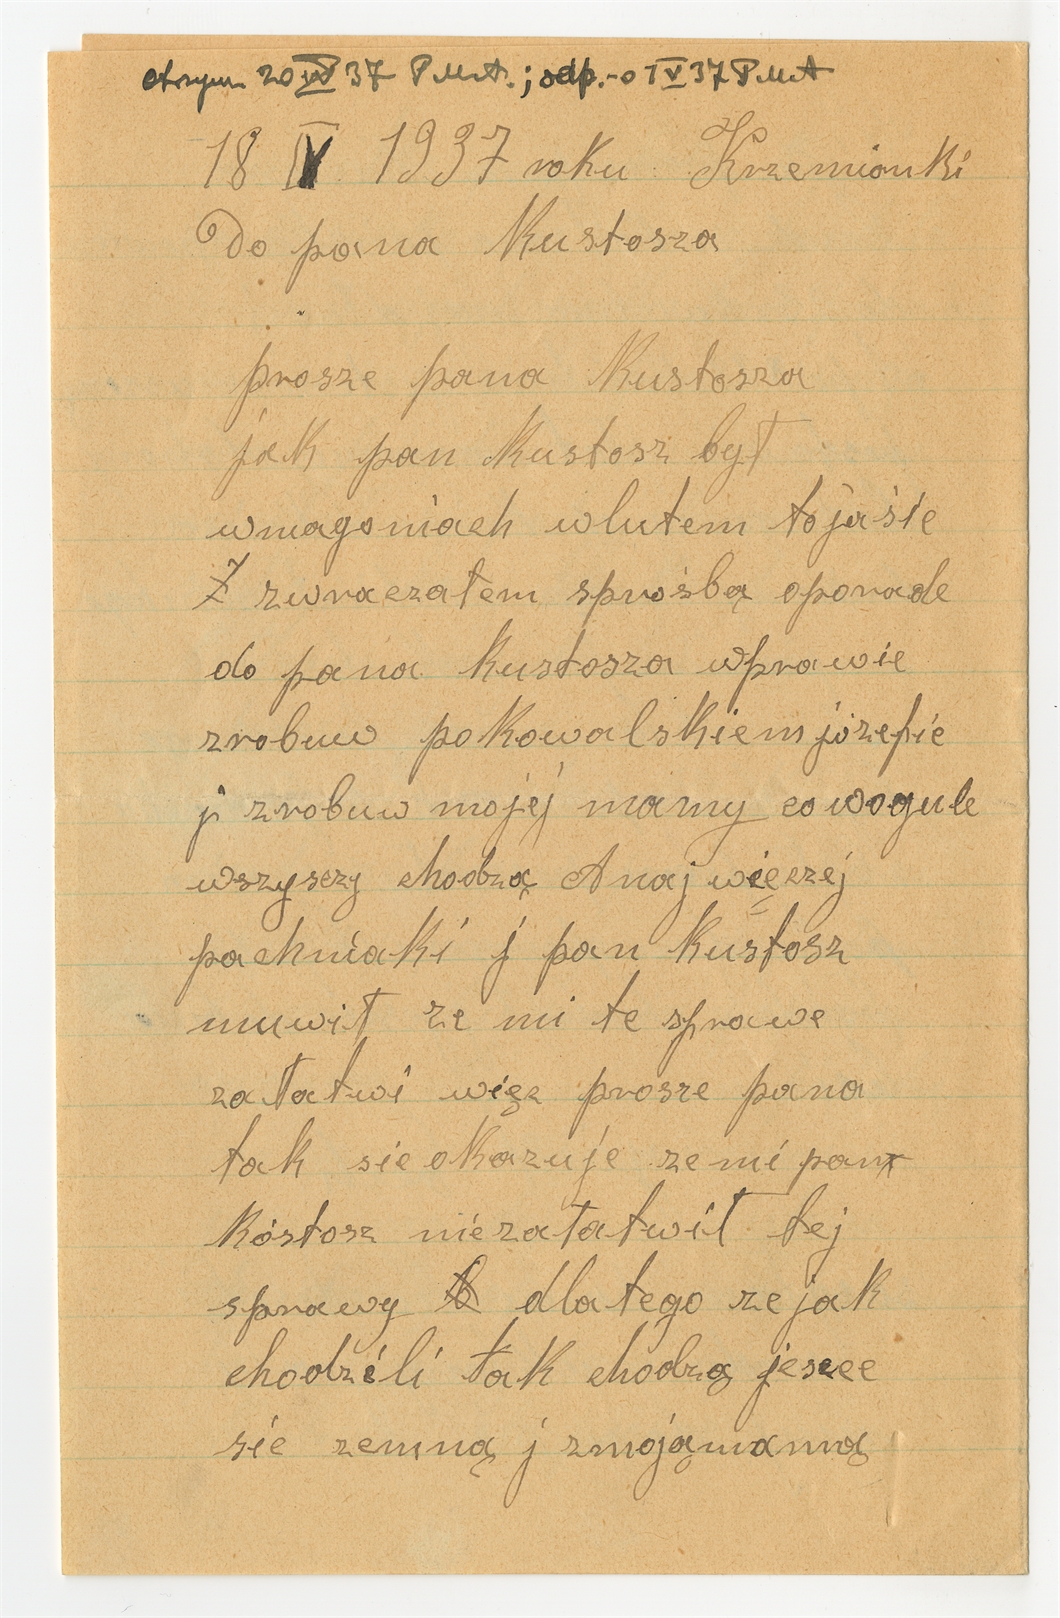 otrzym. 20 IV 37 PMA.; odp. 1 V 37 PMA
18 IV 1937 roku Krzemionki
Do pana Kustosza
prosze pana Kustosza
jak pan Kustosz był
wmagoniach wlutem to ja sie
zwraczałem sprośbą oporade
do pana kustosza wprawie
zrobuw pokowalskiem józefie
j zrobuw mojéj mamy co wogule
wszysczy chodzą Anaj więczéj
pachniaki j pan kustosz
muwił ze mi te sprawe
załatwi więz prosze pana
tak sie okazuje ze mi pan
kóstosz niezałatwił tej
sprawy dlatego ze jak
chodzili tak chodzą jescee
sie zemną j zmojąmamą